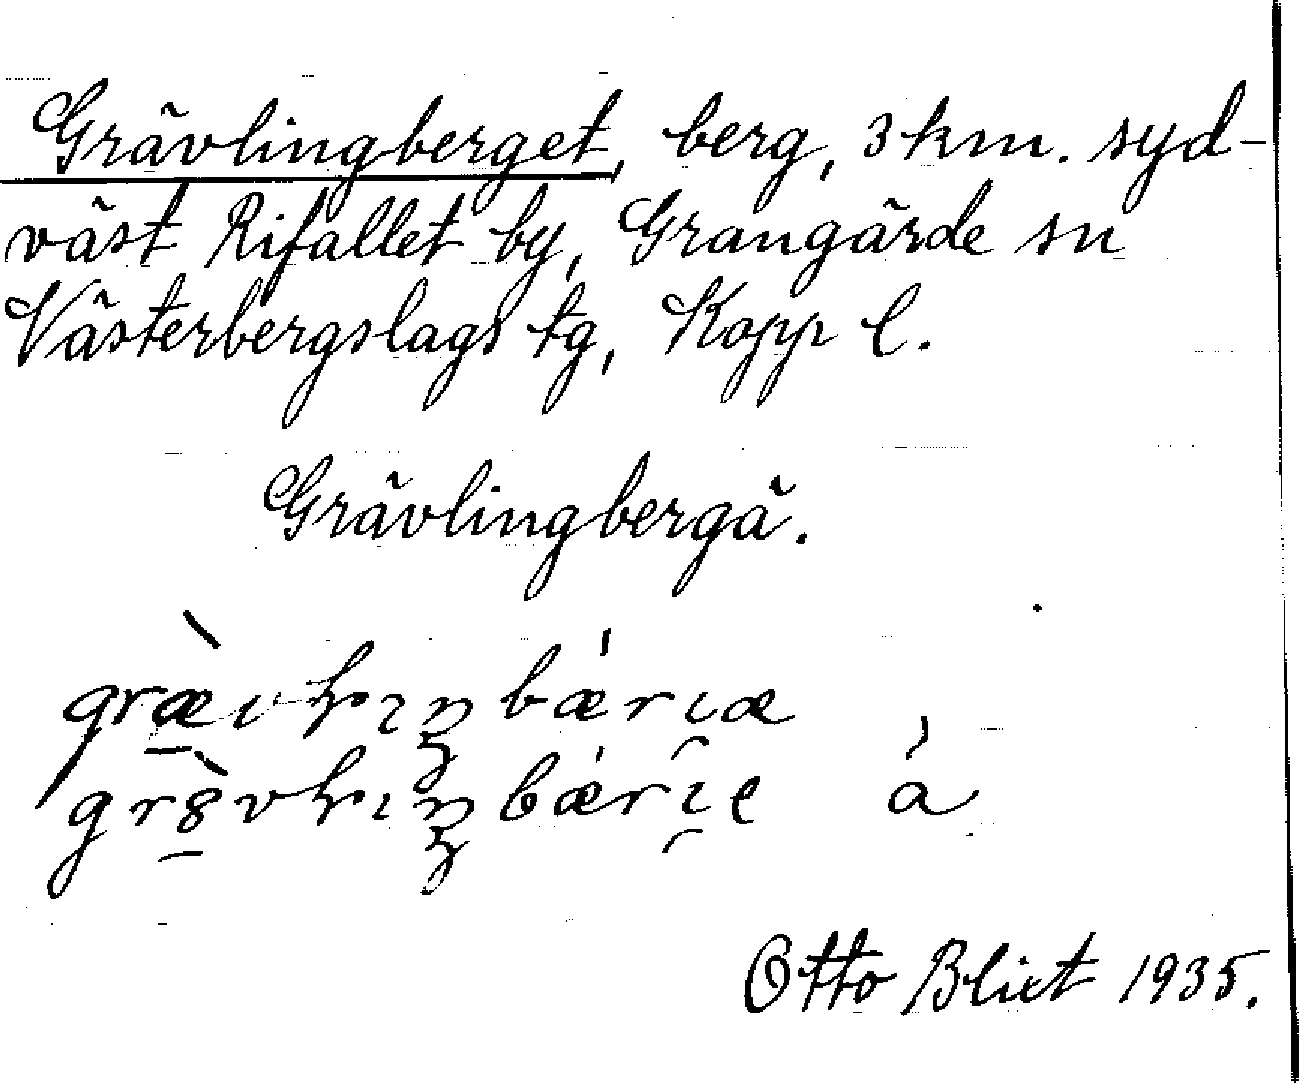 Grävlingberget, berg, 3 km. syd-
väst Rifallet by, Grangärde sn
Västerbergslags tg, Kopp l.
Grävlingbergä.
á
Otto Blixt 1935.